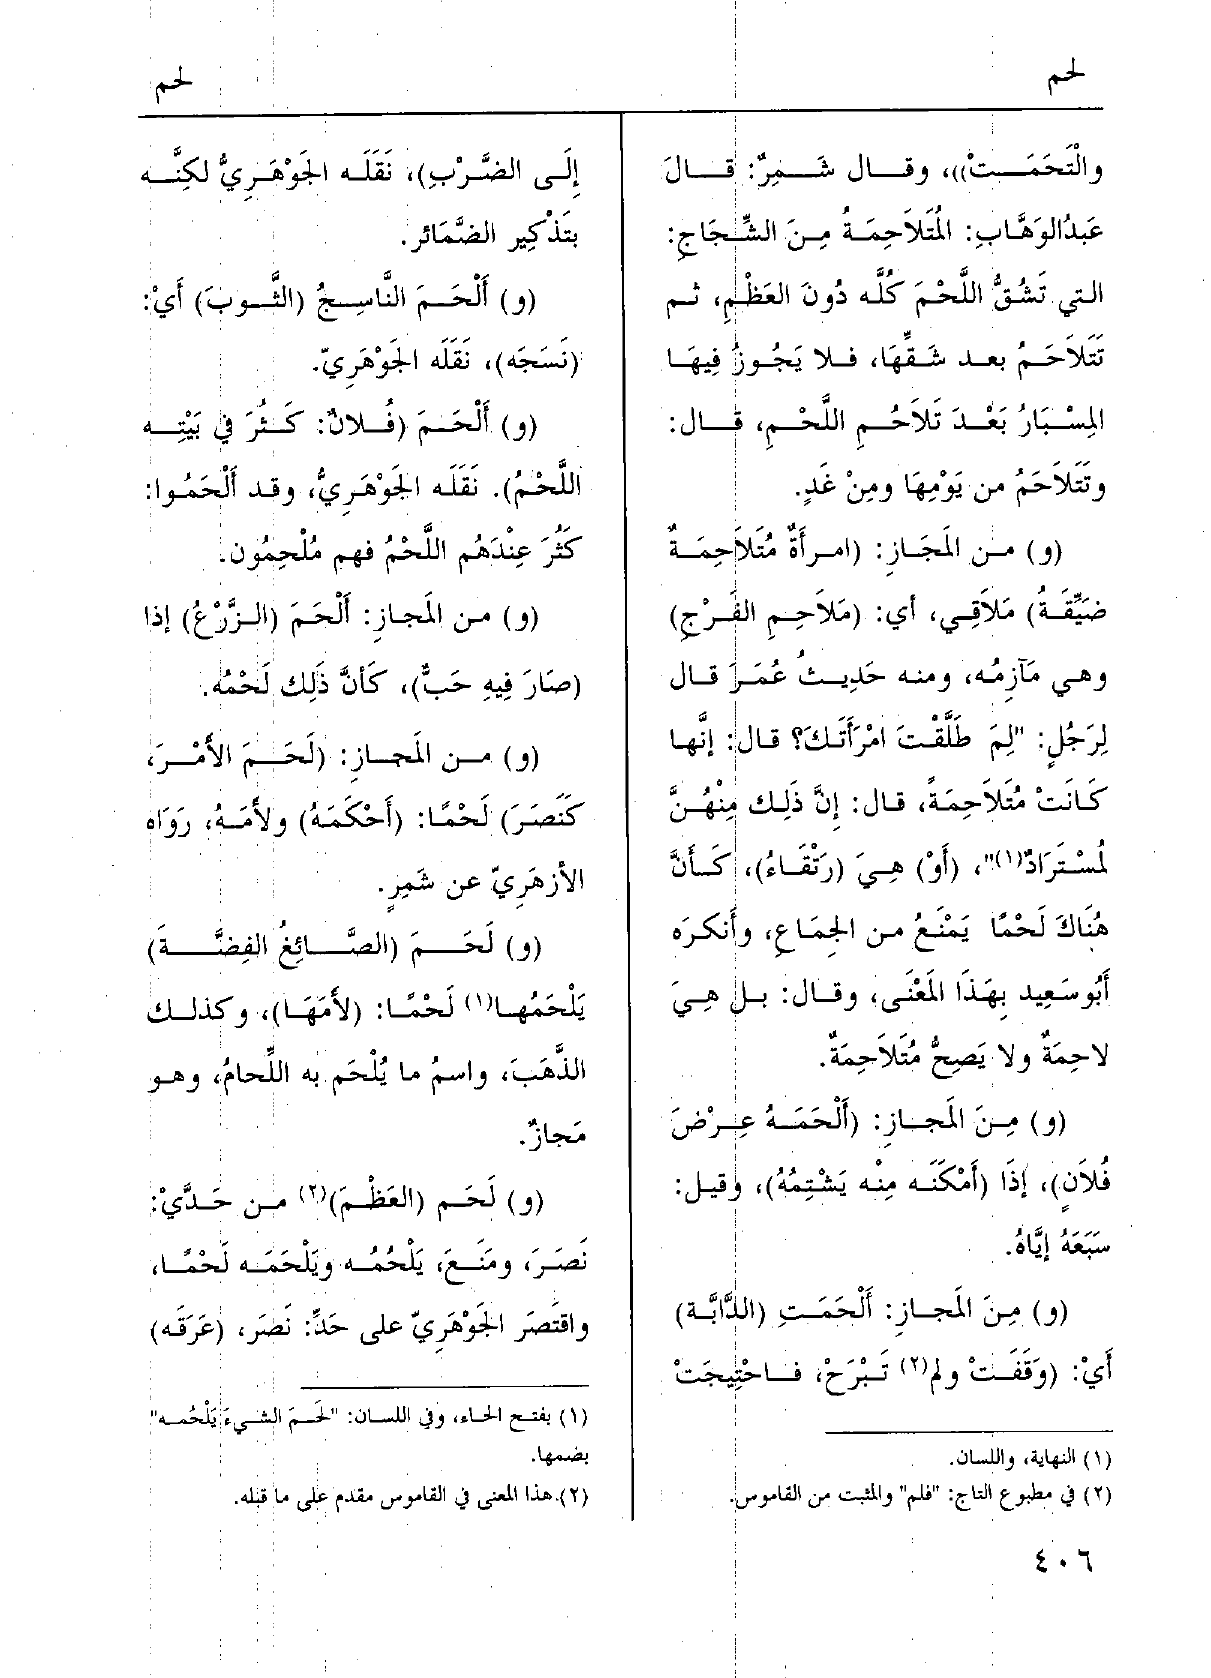 لحم
لحم
والْتَحَمَتْ))، وقال شَمِرٌ: قالَ
عَبدُالوَهَّابِ: المُتَلاَحِمَةُ مِنَ الشِّجَاجِ:
التي تَشُقُّ اللَّحْمَ كُلَّه دُونَ العَظْمِ، ثم
تَتَلاَحَمُ بعد شَقِّهَا، فلا يَجُوزُ فِيهَا
المِسْبَارُ بَعْدَ تَلاَحُمِ اللَّحْمِ، قال:
وتَتَلاَحَمُ من يَوْمِهَا ومِنْ غَدٍ.
(و) من المَجَازِ: (امرأَةٌ مُتَلاَحِمَةٌ
ضَيِّقَةُ) مَلاَقِي، أي: (مَلاَحِمِ الفَرْجِ)
وهي مَآزِمُه، ومنه حَدِيثُ عُمَرَ قال
لِرَجُلٍ: "لِمَ طَلَّقْتَ امْرَأَتَكَ؟ قال: إنَّها
كَانَتْ مُتَلاَحِمَةً، قال: إِنَّ ذَلِك مِنْهُنَّ
لُمسْتَرَادٌ(١)"، (أَوْ) هِيَ (رَتْقَاءُ)، كَأَنَّ
هُنَاكَ لَحْمًا يَمْنَعُ من الجِمَاعِ، وأَنكرَه
أَبُوسَعِيد بِهَذَا المَعْنَى، وقال: بل هِيَ
لاحِمَةٌ ولا يَصِحُّ مُتَلاَحِمَةٌ.
(و) مِنَ المَجازِ: (أَلْحَمَهُ عِرْضَ
فُلاَنٍ)، إذَا (أَمْكَنَه مِنْه يَشْتِمُهُ)، وقيل:
سَبَعَهُ إيَّاهُ.
(و) مِنَ المَجازِ: أَلْحَمَتِ (الدَّابَّة)
أَيْ: (وَقَفَتْ ولم(٢) تَبْرَحْ، فاحْتِيجَتْ
(١) النهاية، واللسان.
(٢) في مطبوع التاج: "فلم" والمثبت من القاموس.
إِلَى الضَّرْبِ)، نَقَلَه الجَوْهَرِيُّ لكِنَّه
بتَذْكِيرِ الضَّمائرِ.
(و) أَلْحَمَ النَّاسِجُ (الثَّوبَ) أَيْ:
(نَسَجَه)، نَقَلَه الجَوْهَرِيّ.
(و) أَلْحَمَ (فُلانٌ: كَثُرَ في بَيْتِه
اللَّحْمُ). نَقَلَه الجَوْهَرِيُّ، وقد أَلْحَمُوا:
كَثُرَ عِنْدَهُم اللَّحْمُ فهم مُلْحِمُون.
(و) من المَجازِ: أَلْحَمَ (الزَّرْعُ) إذا
(صَارَ فِيهِ حَبٌّ)، كَأنَّ ذَلِك لَحْمُه.
(و) من المَجازِ: (لَحَمَ الأَمْرَ،
كَنَصَرَ) لَحْمًا: (أَحْكَمَهُ) ولأَمَهُ، رَوَاه
الأزهَرِيّ عن شَمِرٍ.
(و) لَحَمَ (الصَّائِغُ الفِضَّةَ)
يَلْحَمُها(١) لَحْمًا: (لأَمَهَا)، وكذلك
الذَّهَبَ، واسمُ ما يُلْحَم به اللِّحامُ، وهو
مَجازٌ.
(و) لَحَم (العَظْمَ)(٢) من حَدَّيْ:
نَصَرَ، ومَنَعَ، يَلْحُمُه ويَلْحَمَه لَحْمًا،
واقتَصَرَ الجَوْهَرِيّ على حَدِّ: نَصَر، (عَرَقَه)
(١) بفتح الحاء، وفي اللسان: "لَحَمَ الشيءَ يَلْحُمه"
بضمها.
(٢) هذا المعنى في القاموس مقدم على ما قبله.
٤٠٦